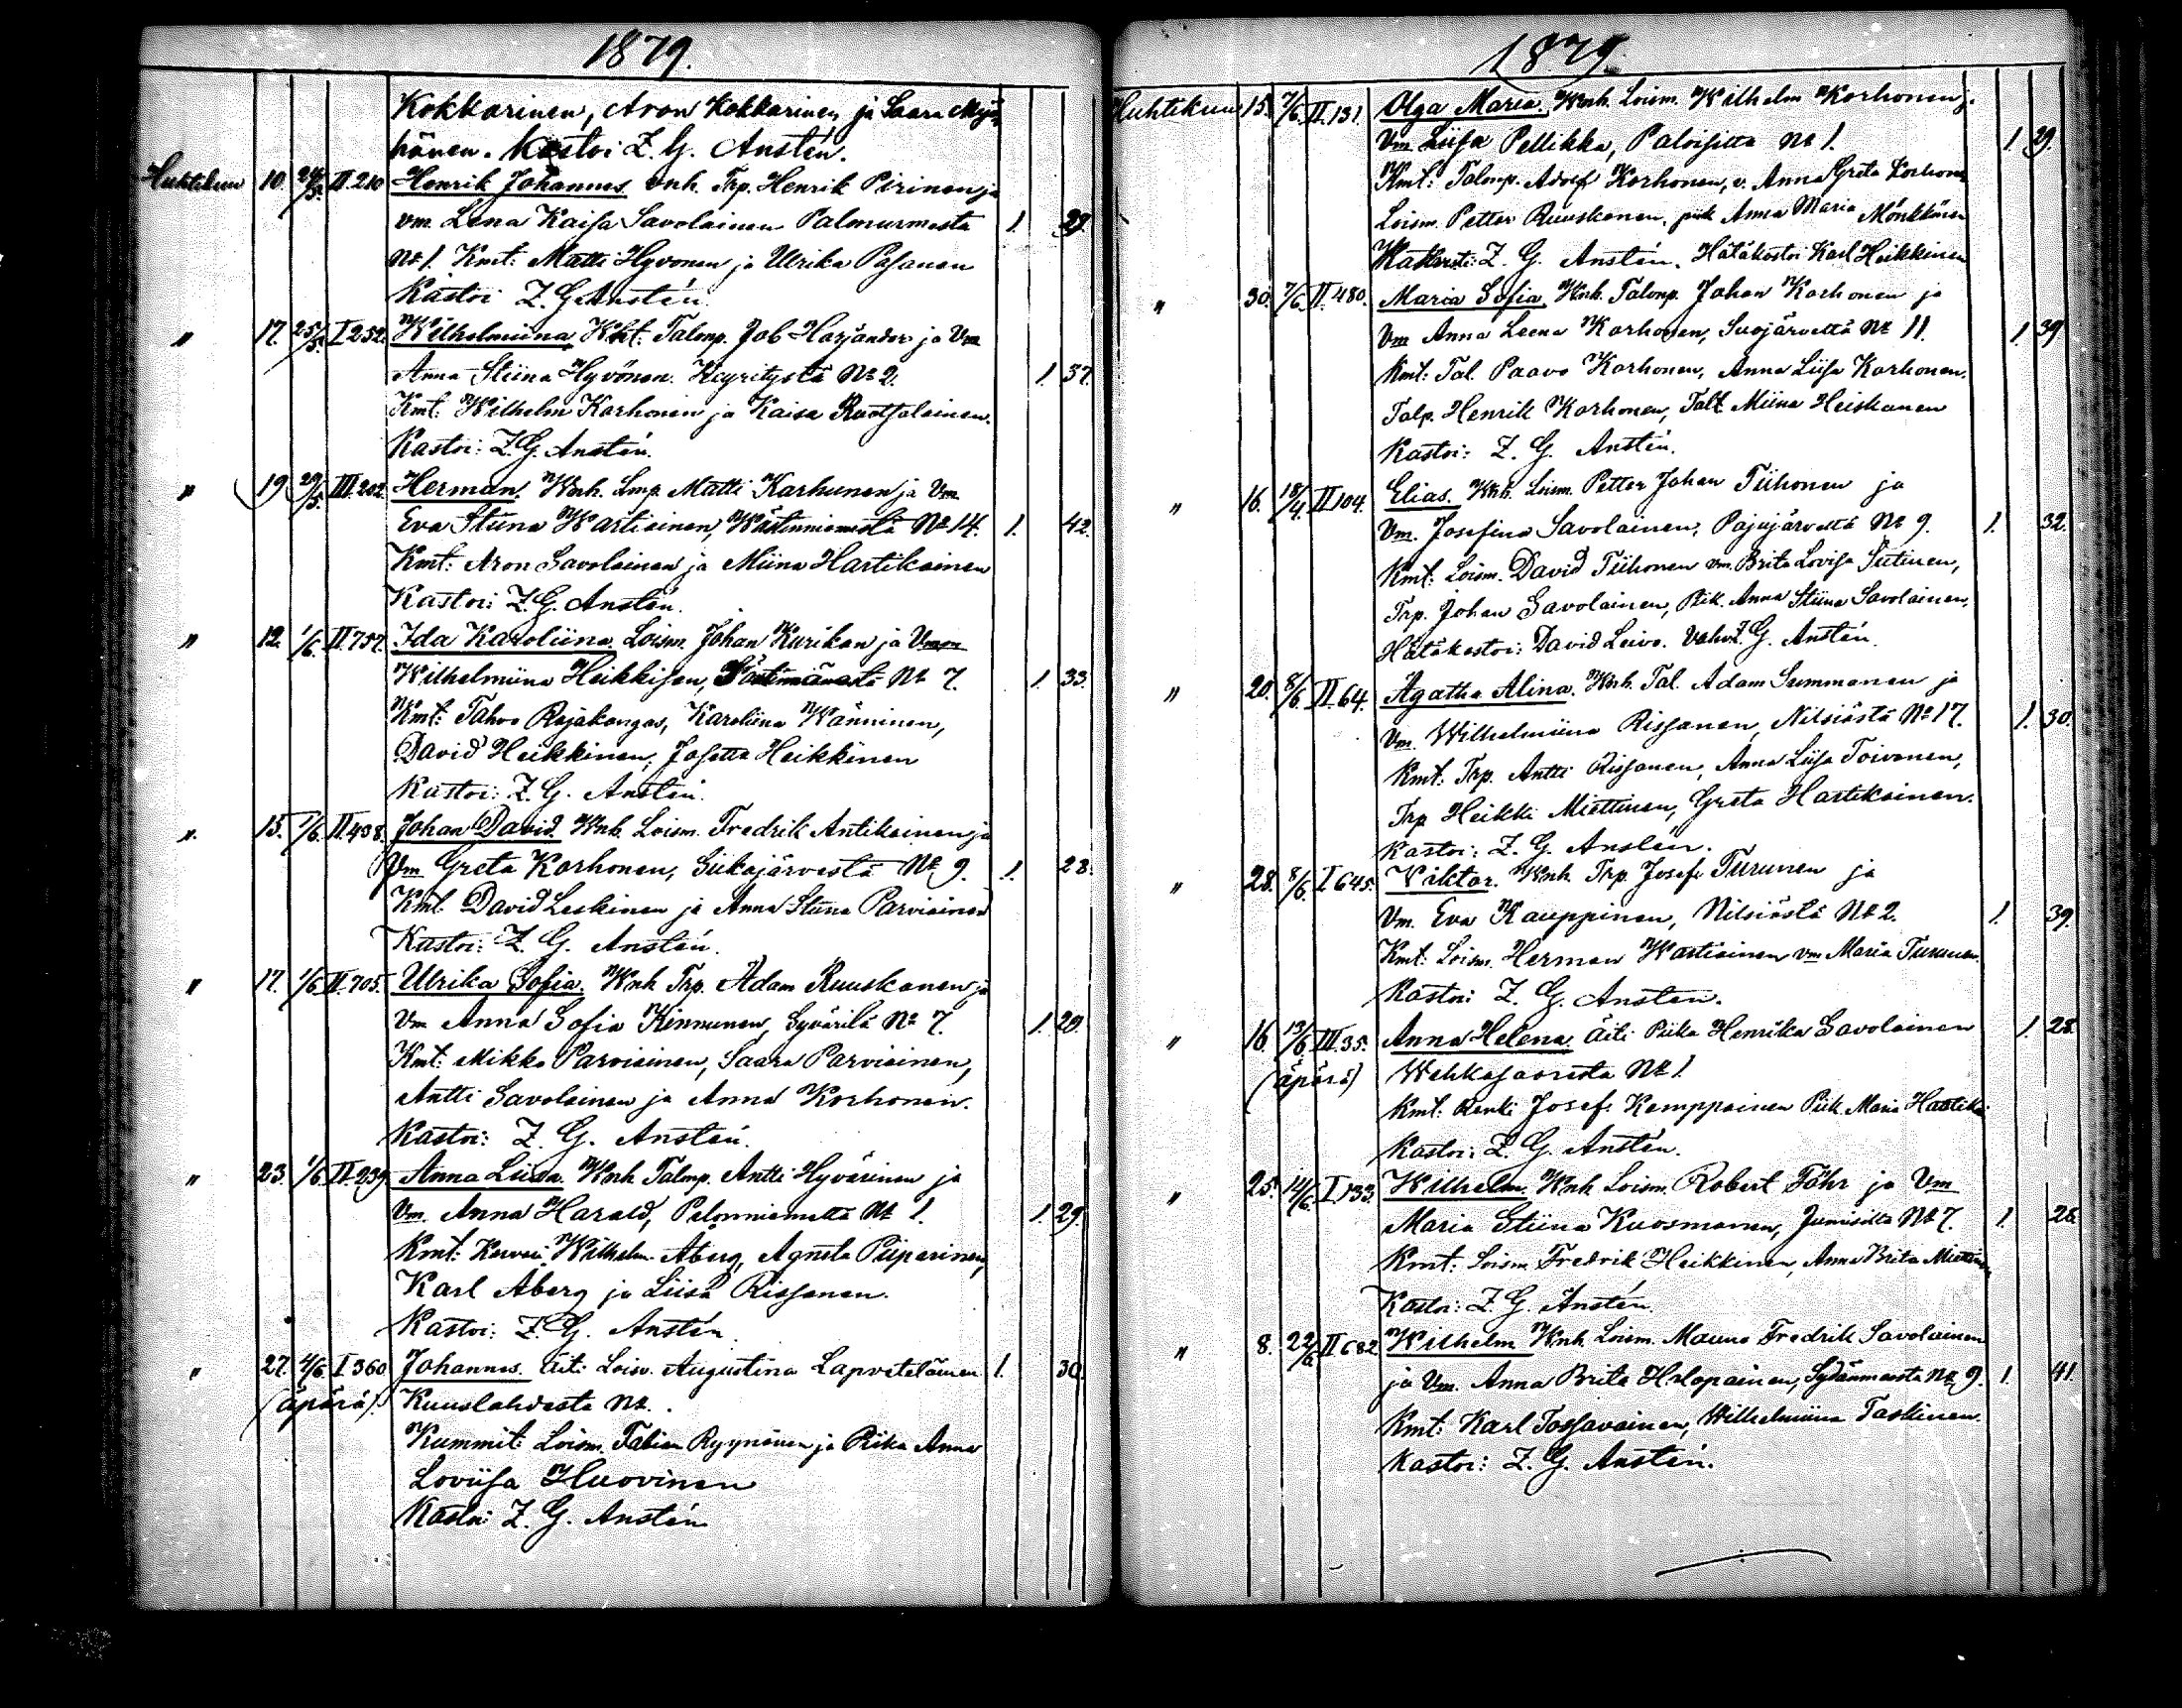 1879.
Kokkarinen, Aron Kokkarinen ja Saara Myö-
hänen. Kastoi Z. G. Anstén.
Huhtikuu 10. 24/5. II.210 Henrik Johannes. Vnh. Trp. Henrik Pirinen ja
vm. Lena Kaisa Savolainen Palonurmesta 1. 29.
№ 1. Kmt: Matti Hyvönen ja Ulrika Pasanen
Kastoi Z. G. Anstén.
" 17. 25/5. I 252. Wilhelmiina. Talonp. Job Harjander ja Vm
Anna Stiina Hyvönen. Keyritystä № 2. 1. 37.
Kmt: Wilhelm Karhonen ja Kaisa Ruotsalainen.
Kastoi: Z. G. Anstén.
" 19 29/5. III.202. Herman. Wnh. Lmp. Matti Karhunen ja Vm
Eva Stiina Wartiainen, Wästinniemestä № 14. 1. 42.
Kmt: Aron Savolainen ja Miina Hartikainen
Kastoi: Z. G. Anstén.
" 12. 1/6. II 757. Ida Karoliina. Loism. Johan Kurikan ja
Wilhelmiina Heikkisen, № 7. 1. 33.
Kmt: Tahvo Rajakangas, Karoliina Wänninen,
David Heikkinen, Josetta Heikkinen
Kastoi: Z. G. Anstén.
" 15. 1/6. II.438. Johan David. Wnh. Loism. Fredrik Antikainen ja
Vm Greta Korhonen, Siikajärvestä № 9. 1. 28.
Kmt. David Leskinen ja Anna Stiina Parviainen
Kastoi: Z. G. Anstén.
" 17. 1/6. II.705. Ulrika Sofia. Wnh Trp. Adam Ruuskanen ja
Vm Anna Sofia Kinnunen, Syvärilä № 7. 1. 29.
Kmt: Mikko Parviainen, Saara Parviainen,
Antti Savolainen ja Anna Korhonen.
Kastoi: Z. G. Anstén.
" 23. 1/6. II.239 Anna Liisa. Wnh Talonp. Antti Hyvärinen ja
Vm. Anna Harald, № 1. 1. 29.
Kmt: Wilhelm Aberg, Agneta Piiparinen,
Karl Aberg ja Liisa Rissanen.
Kastoi: Z. G. Anstén.
" 27. 4/6. I 360 Johannes. Äiti: Loisv. Augustina Lapveteläinen 1. 30.
(äpärä). Kuuslahdesta №.
Kummit: Loism. Fabian Ryynänen ja Piika Anna
Loviisa Huovinen
Kastoi: Z. G. Anstén
1879.
Huhtikuu 15. 7/6. II.131. Olga Maria. Wnh. Loism. Wilhelm Korhonen j.
Vm. Liisa Pellikka, Paloisilta № 1. 1 29.
Kmt: Talonp. Adolf Korhonen, v. Anna Greta Korhone
Loism. Petter Ruuskanen, piik Anna Maria Mönkkönen
Z. G. Anstén. Hätäkastoi Karl Heikkinen
" 30. 7/6. II.480. Maria Sofia. Wnh. Talonp. Johan Korhonen ja
Vm Anna Leena Korhonen, Suojärveltä № 11. 1 39
Kmt: Tal. Paavo Korhonen, Anna Liisa Korhonen.
Talp. Henrik Korhonen, Talt Miina Heiskanen
Kastoi: Z. G. Anstén.
" 16. 18/4. II 104. Elias. Wnh. Loism. Petter Johan Tiihonen ja
Vm. Josefina Savolainen, Pajujärveltä № 9. 1. 32.
Kmt: Loism. David Tiihonen vm. Brita Lovisa Siitinen,
Trp. Johan Savolainen, Piik. Anna Stiina Savolainen,
Hätäkastoi: David Leivo. Vahv. Z. G. Anstén
" 20. 8/6. II. 64. Agatha Alina. Wnh. Tal. Adam Summanen ja
Vm. Wilhelmiina Rissanen, Nilsiästä № 17. 1. 30.
Kmt: Trp. Antti Rissanen, Anna Liisa Toivonen,
Trp Heikki Miettinen, Greta Hartikainen.
Kastoi: Z. G. Anstén.
" 28. 8/6. I 645. Viktor. Wnh. Trp. Josef Turunen ja
Vm. Eva Kauppinen, Nilsiästä № 2. 1. 39.
Kmt: Loism. Herman Wartiainen vm Maria Turunen.
Kastoi: Z. G. Anstén.
" 16. 13/6. III.35. Anna Helena. Äiti Piika Henrika Savolainen 1. 28.
(äpärä) № 1.
Kmt: Renki Josef Kemppainen Piik. Maria Hartika-
Kastoi: Z. G. Anstén.
" 25. 14/6. I 133. Wilhelm. Wnh. Loism. Robert Föhr ja Vm
Maria Stiina Kuosmanen, № 7. 1. 28
Kmt: Loism Fredrik Heikkinen, Anna Brita Miettinen
Kastoi: Z. G. Anstén.
" 8. 22/6. II 682 Wilhelm Wnh. Loism. Mauno Fredrik Savolainen
ja Vm. Anna Brita Holopainen, Sydänmaasta № 9. 1. 41.
Kmt: Karl Tossavainen, Wilhelmiina Taskinen.
Kastoi: Z. G. Anstén.